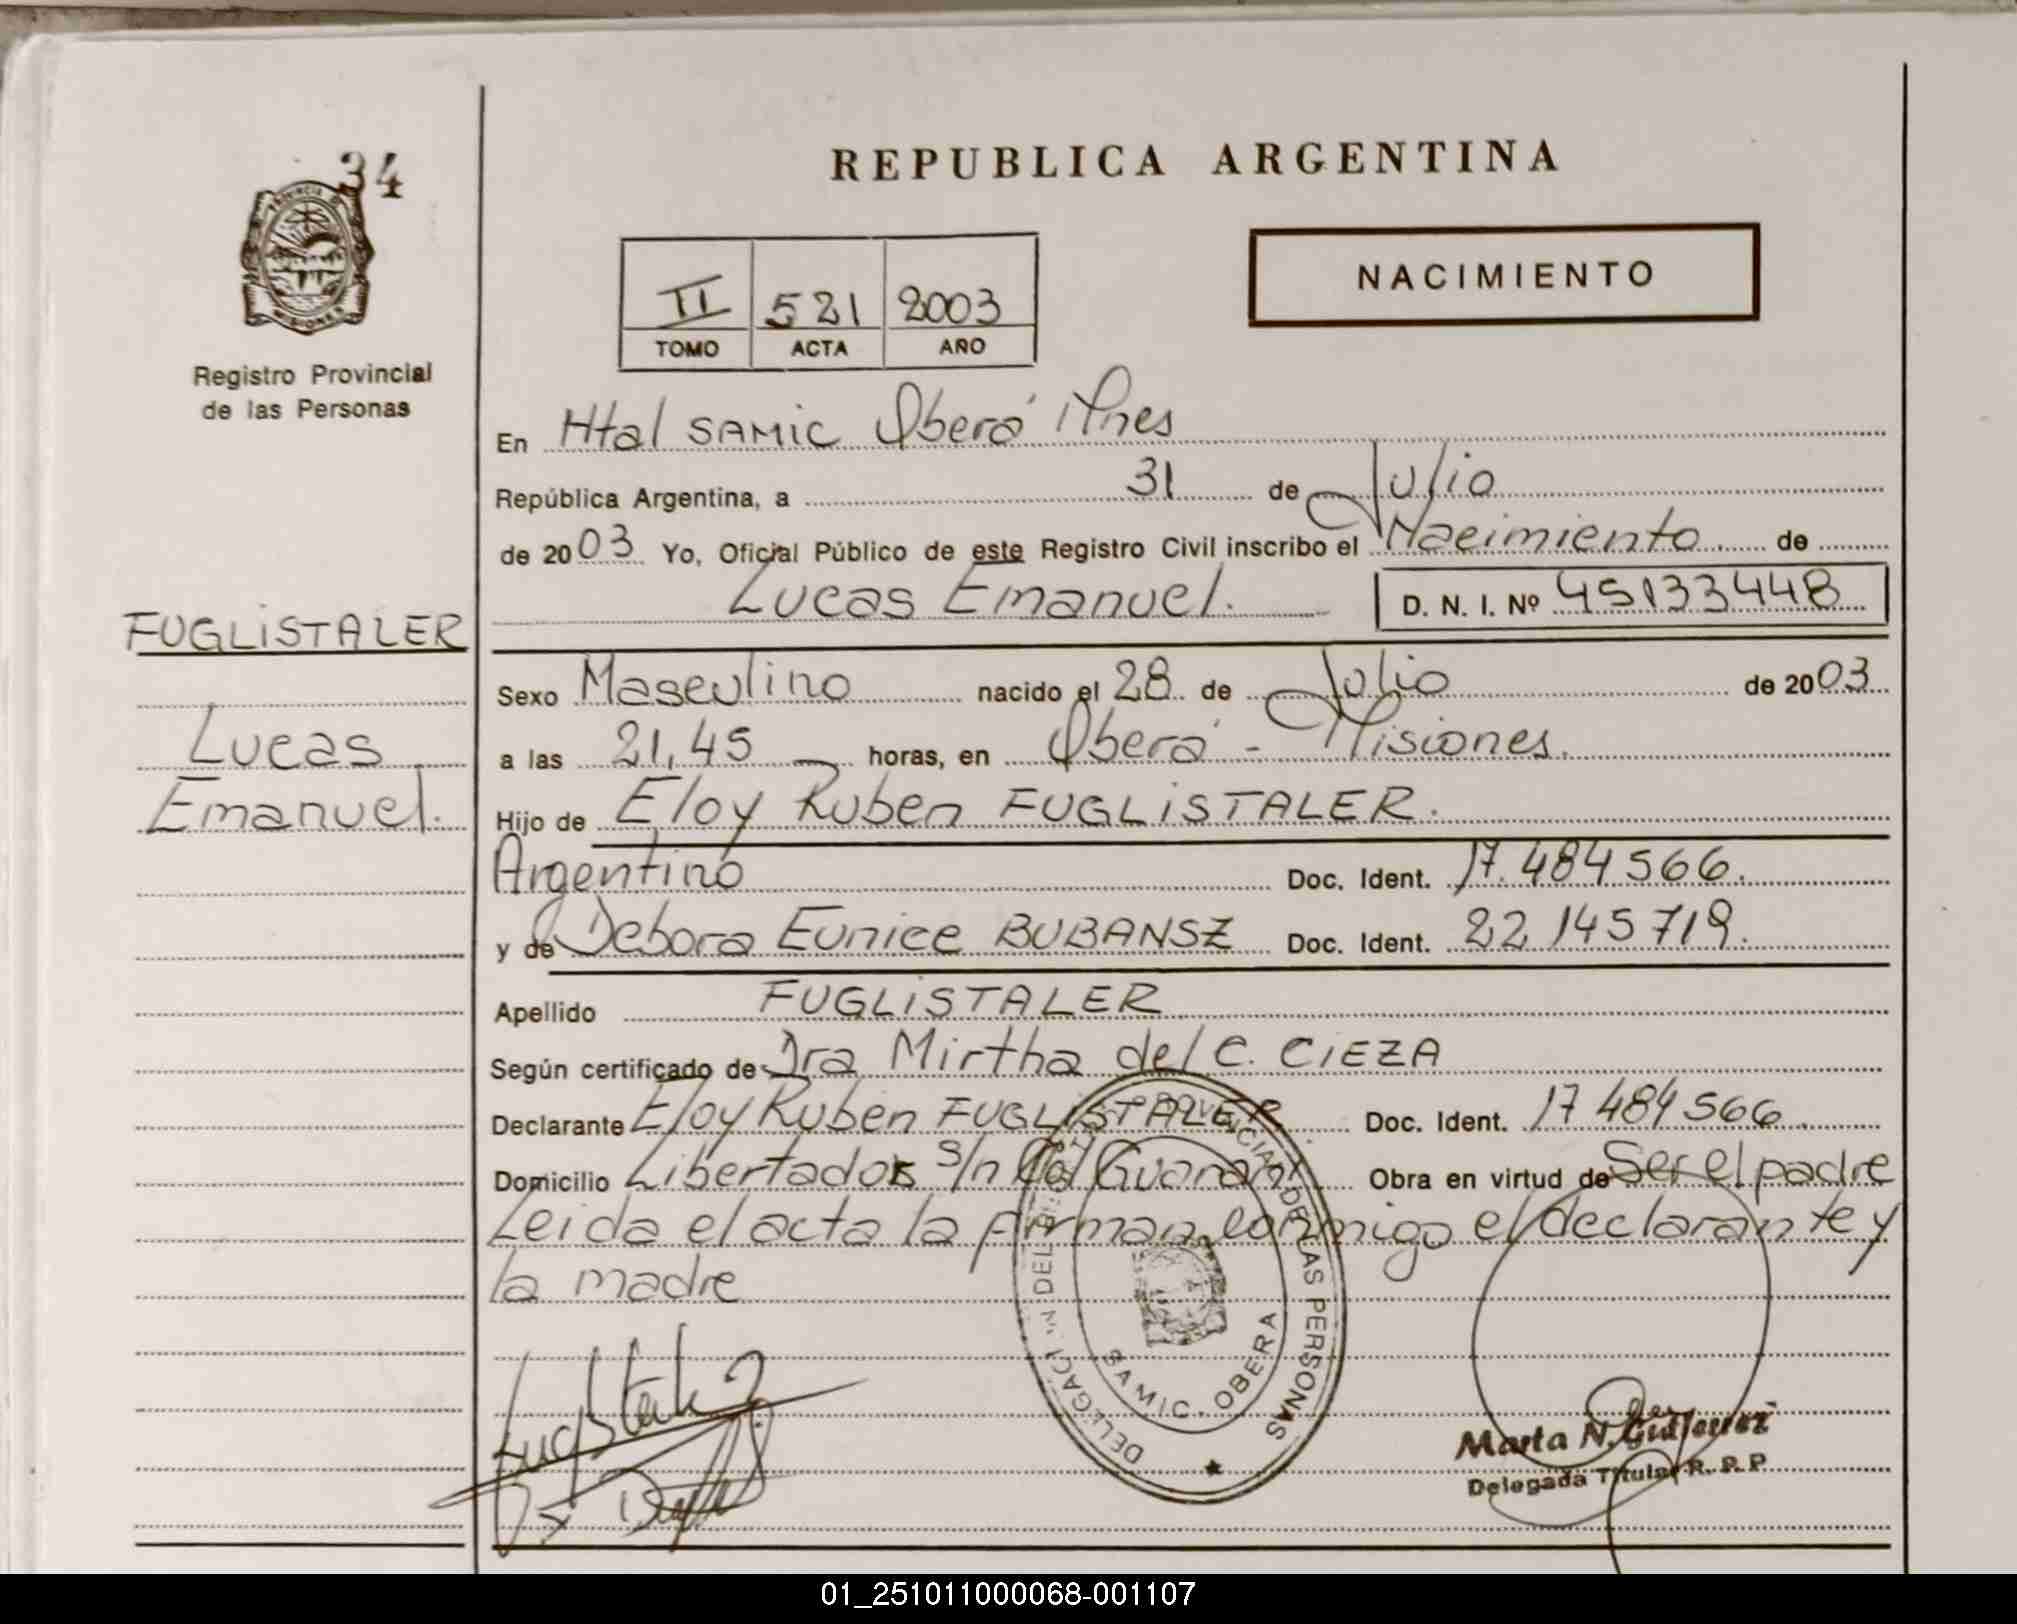 34
REPUBLICA ARGENTINA
PROVINCIA DE MISIONES
Registro Provincial
de las Personas
II 521 2003
TOMO ACTA AÑO
NACIMIENTO
En Htal SAMIC Oberá Mnes
República Argentina, a 31 de Julio
de 2003 Yo, Oficial Público de este Registro Civil inscribo el Nacimiento de
Lucas Emanuel. D. N. I. Nº 45133448
FUGLISTALER
Lucas
Emanuel.
Sexo Masculino nacido el 28 de Julio de 2003
a las 21,45 horas, en Oberá - Misiones.
Hijo de Eloy Ruben FUGLISTALER.
Argentino Doc. Ident. 17.484566.
y de Debora Eunice BUBANSZ Doc. Ident. 22145719.
Apellido FUGLISTALER
Según certificado de Dra Mirtha del C. CIEZA
Declarante Eloy Ruben FUGLISTALER. Doc. Ident. 17484566.
Domicilio Libertador s/n Col Guarani Obra en virtud de Ser el padre
Leida el acta la firman conmigo el declarante y
la madre
DELEGACION DEL REGISTRO PROVINCIAL DE LAS PERSONAS
SAMIC. OBERA
Marta N. Gutierrez
Delegada Titular R. P. P
01_251011000068-001107